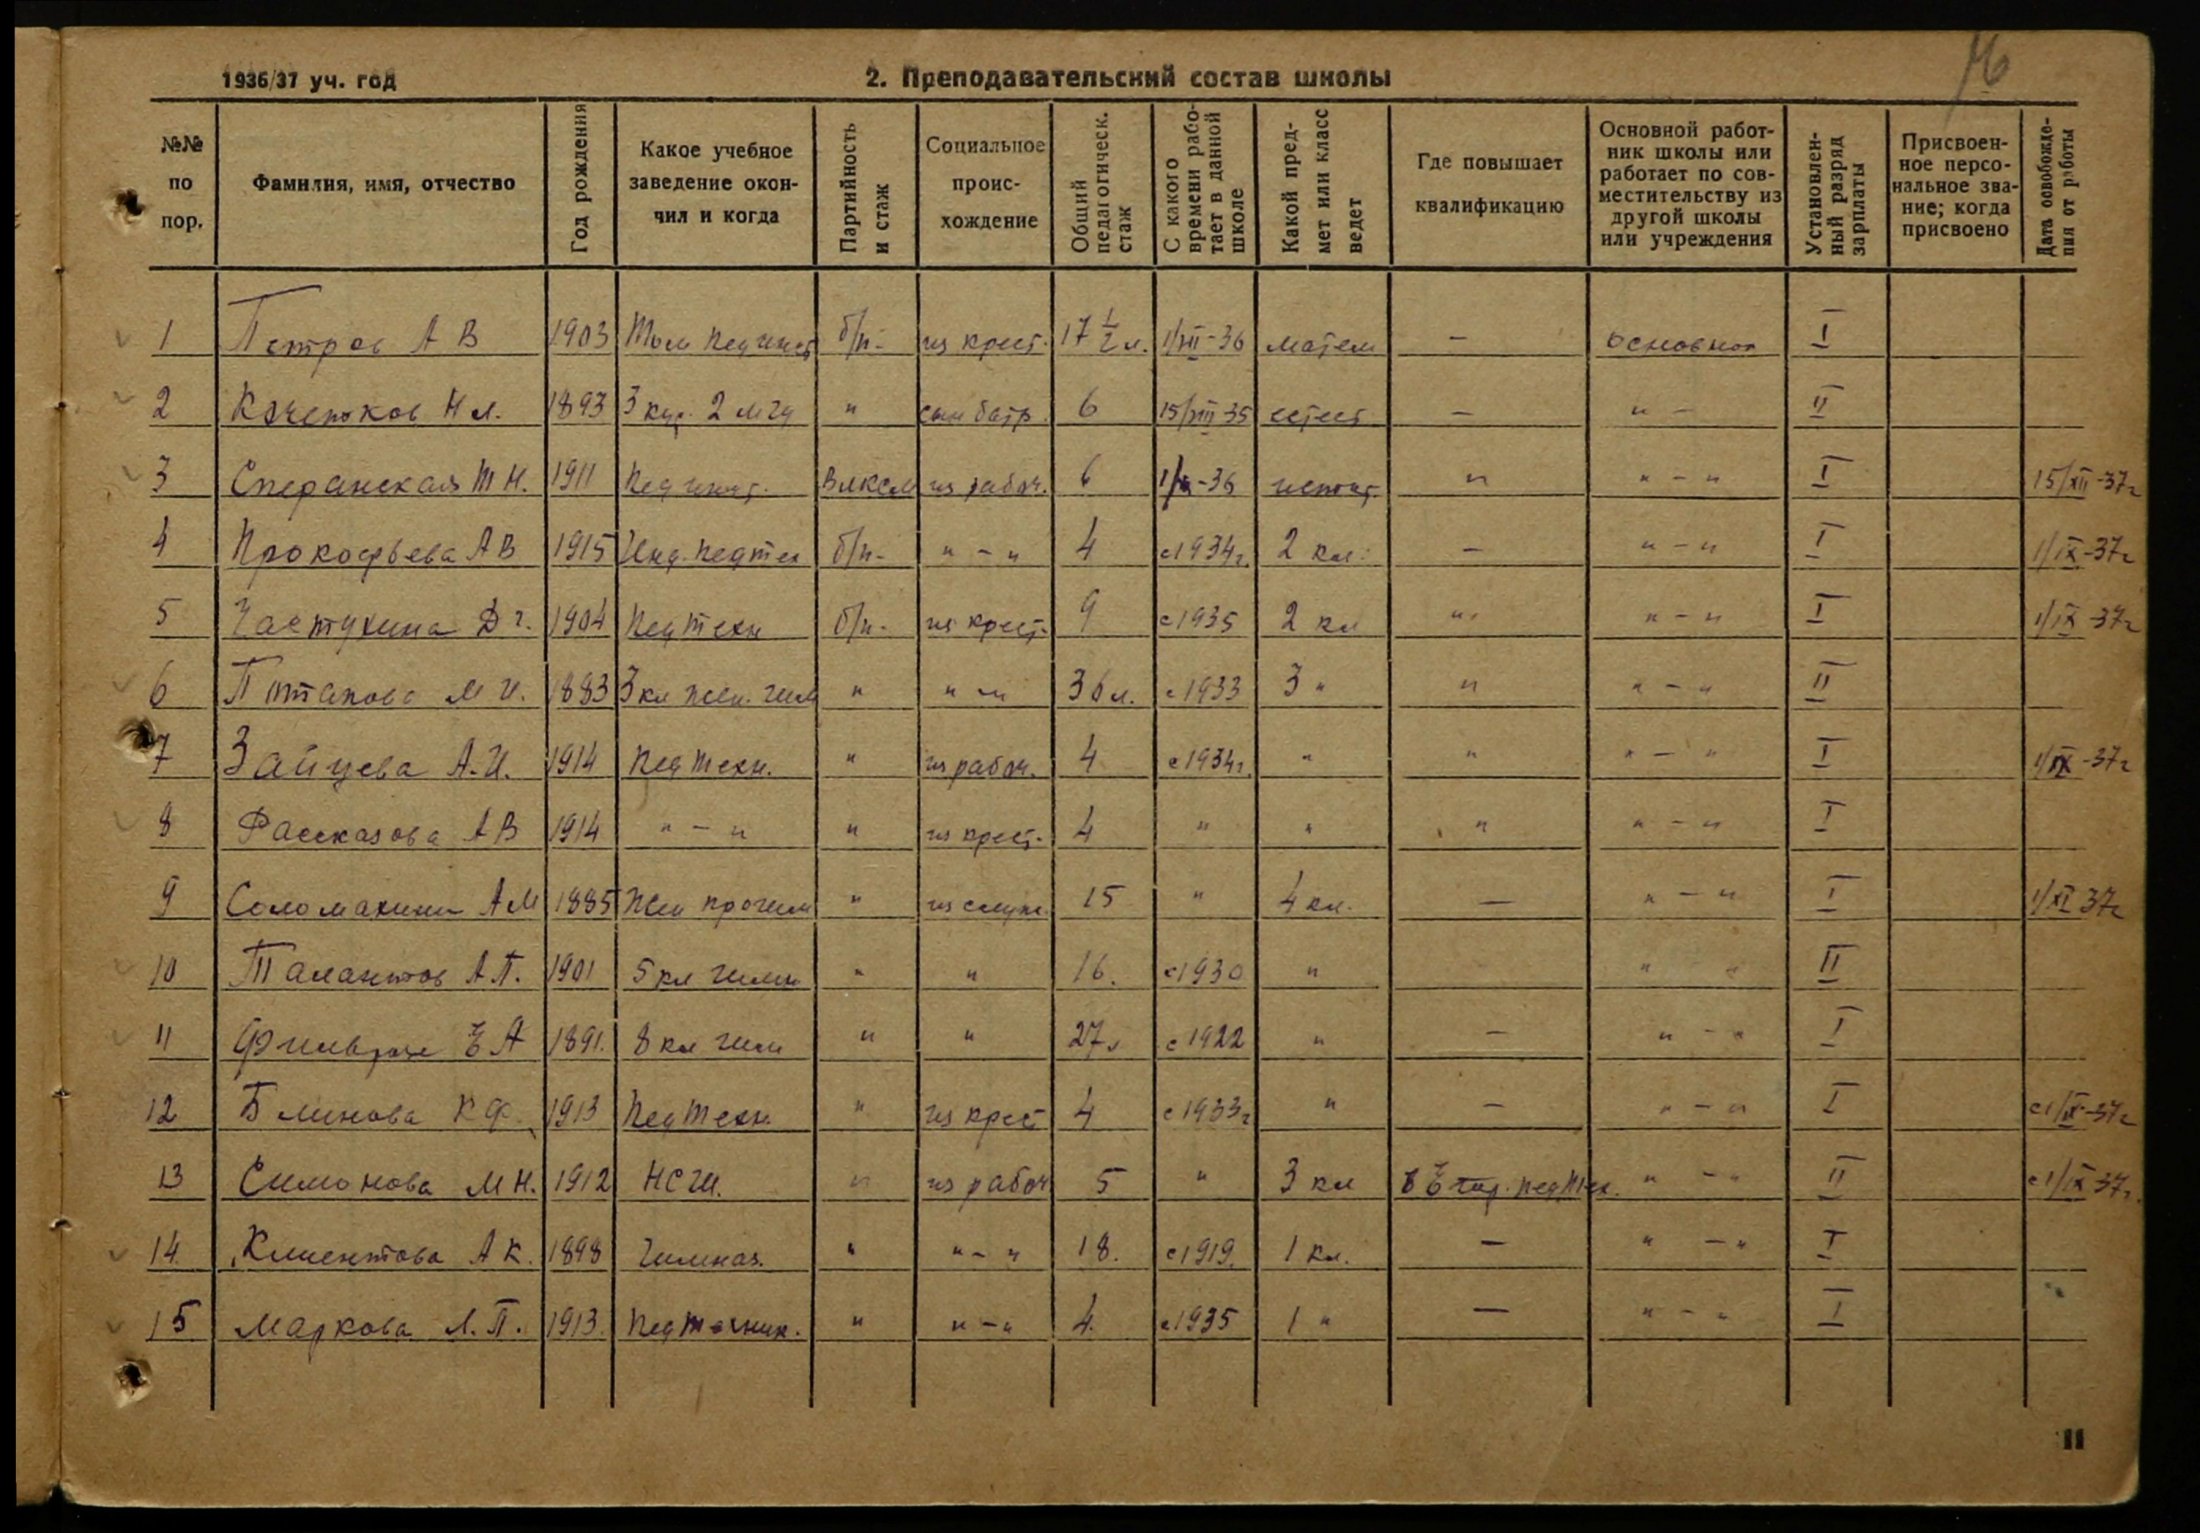 16
1936/37 уч. год
2. Преподавательский состав школы
№№ по пор. | Фамилия, имя, отчество | Год рождения | Какое учебное заведение окончил и когда | Партийность и стаж | Социальное происхождение | Общий педагогическ. стаж | С какого времени работает в данной школе | Какой предмет или класс ведет | Где повышает квалификацию | Основной работник школы или работает по совместительству из другой школы или учреждения | Установленный разряд зарплаты | Присвоенное персональное звание; когда присвоено | Дата освобождения от работы
1 Петров А В 1903 Пединст б/п- из крест. 17 1/2 л. 1/VII-36 матем — основной I
2 Н л. 1893 3 кур. 2 МГУ " сын батр. 6 15/VIII 35 естест — " — II
3 Сперанская Т Н. 1911 Пединст. ВЛКСМ из рабоч. 6 -36 " " — " I 15/XII-37г
4 Прокофьева А В 1915 Инд. педтех б/п- " — " 4 с 1934г. 2 кл. — " — " I 1/IX-37г
5 Частухина Д г. 1904 Педтехн б/п- из крест. 9 с 1935 2 кл " " — " I 1/IX-37г
6 Потапова М И. 1883 3 кл жен. гим " " — " 36 л. с 1933 3 " " " — " II
7 Зайцева А. И. 1914 Педтехн. " из рабоч. 4 с 1934г. " " " — " I 1/IX-37г
8 Рассказова А В 1914 " — " " из крест. 4 " " " " — " I
9 А М 1885 жен прогим " из служ. 15 " 4 кл. — " — " I 1/XI 37г
10 Талантов А П. 1901 5 кл гимн " " 16. с 1930 " " " II
11 Е А 1891. 8 кл гим " " 27 л с 1922 " — " — " I
12 Блинова К Ф. 1913 Педтехн. " из крест 4 с 1933г " — " — " I с 1/IX-37г
13 Симонова М Н. 1912 НСШ. " из рабоч 5 " 3 кл в педтех. " — " II с 1/IX 37г.
14 Климентова А К. 1898 Гимназ. " " — " 18. с 1919. 1 кл. — " — " I
15 Маркова Л. П. 1913. Педтехник. " " — " 4. с 1935 1 " — " — " I
11